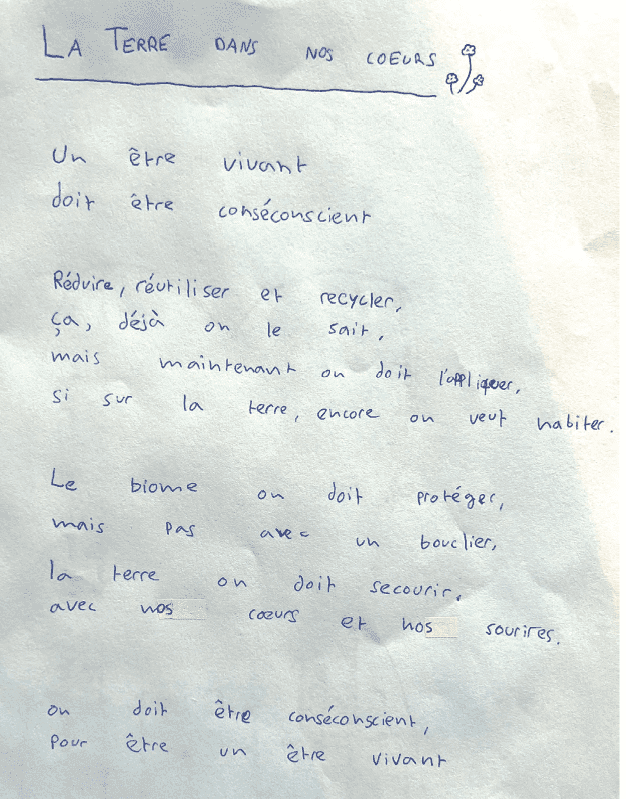 LA TERRE DANS NOS COEURS
Un être vivant
doit être conséconscient
Réduire, réutiliser et recycler,
ça, déjà on le sait,
mais maintenant on doit l'appliquer,
si sur la terre, encore on veut habiter.
Le biome on doit protéger,
mais pas avec un bouclier,
la terre on doit secourir,
avec nos cœurs et nos sourires.
on doit être conséconscient,
pour être un être vivant